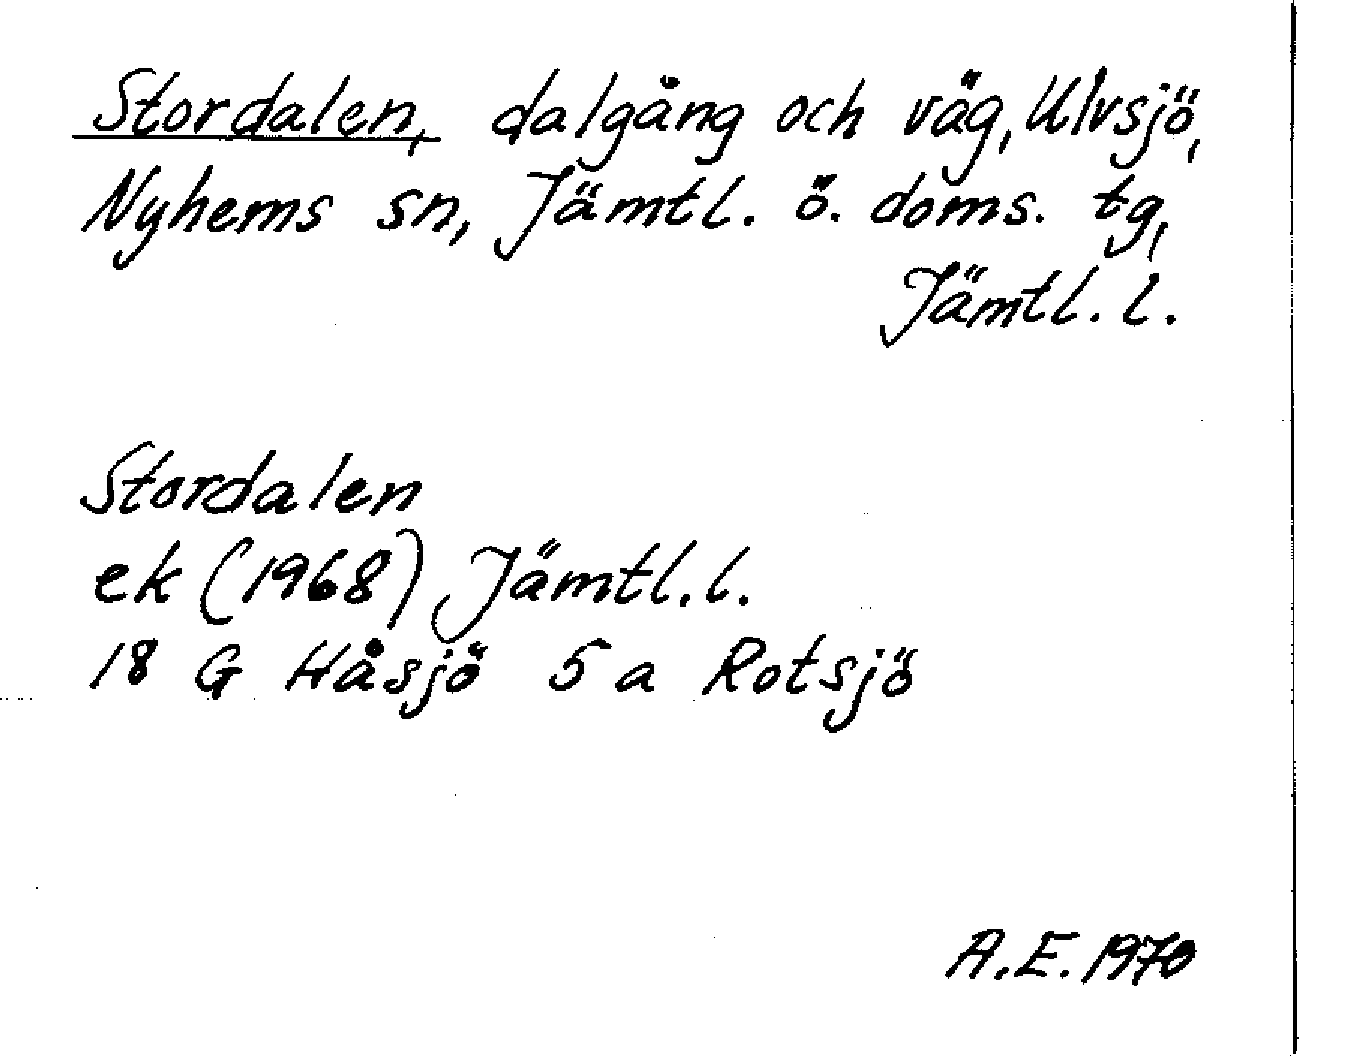 Stordalen, dalgång och väg, Ulvsjö,
Nyhems sn, Jämtl. ö. doms. tg,
Jämtl. l.
Stordalen
ek (1968) Jämtl. l.
18 G Håsjö 5 a Rotsjö
A.E. 1970